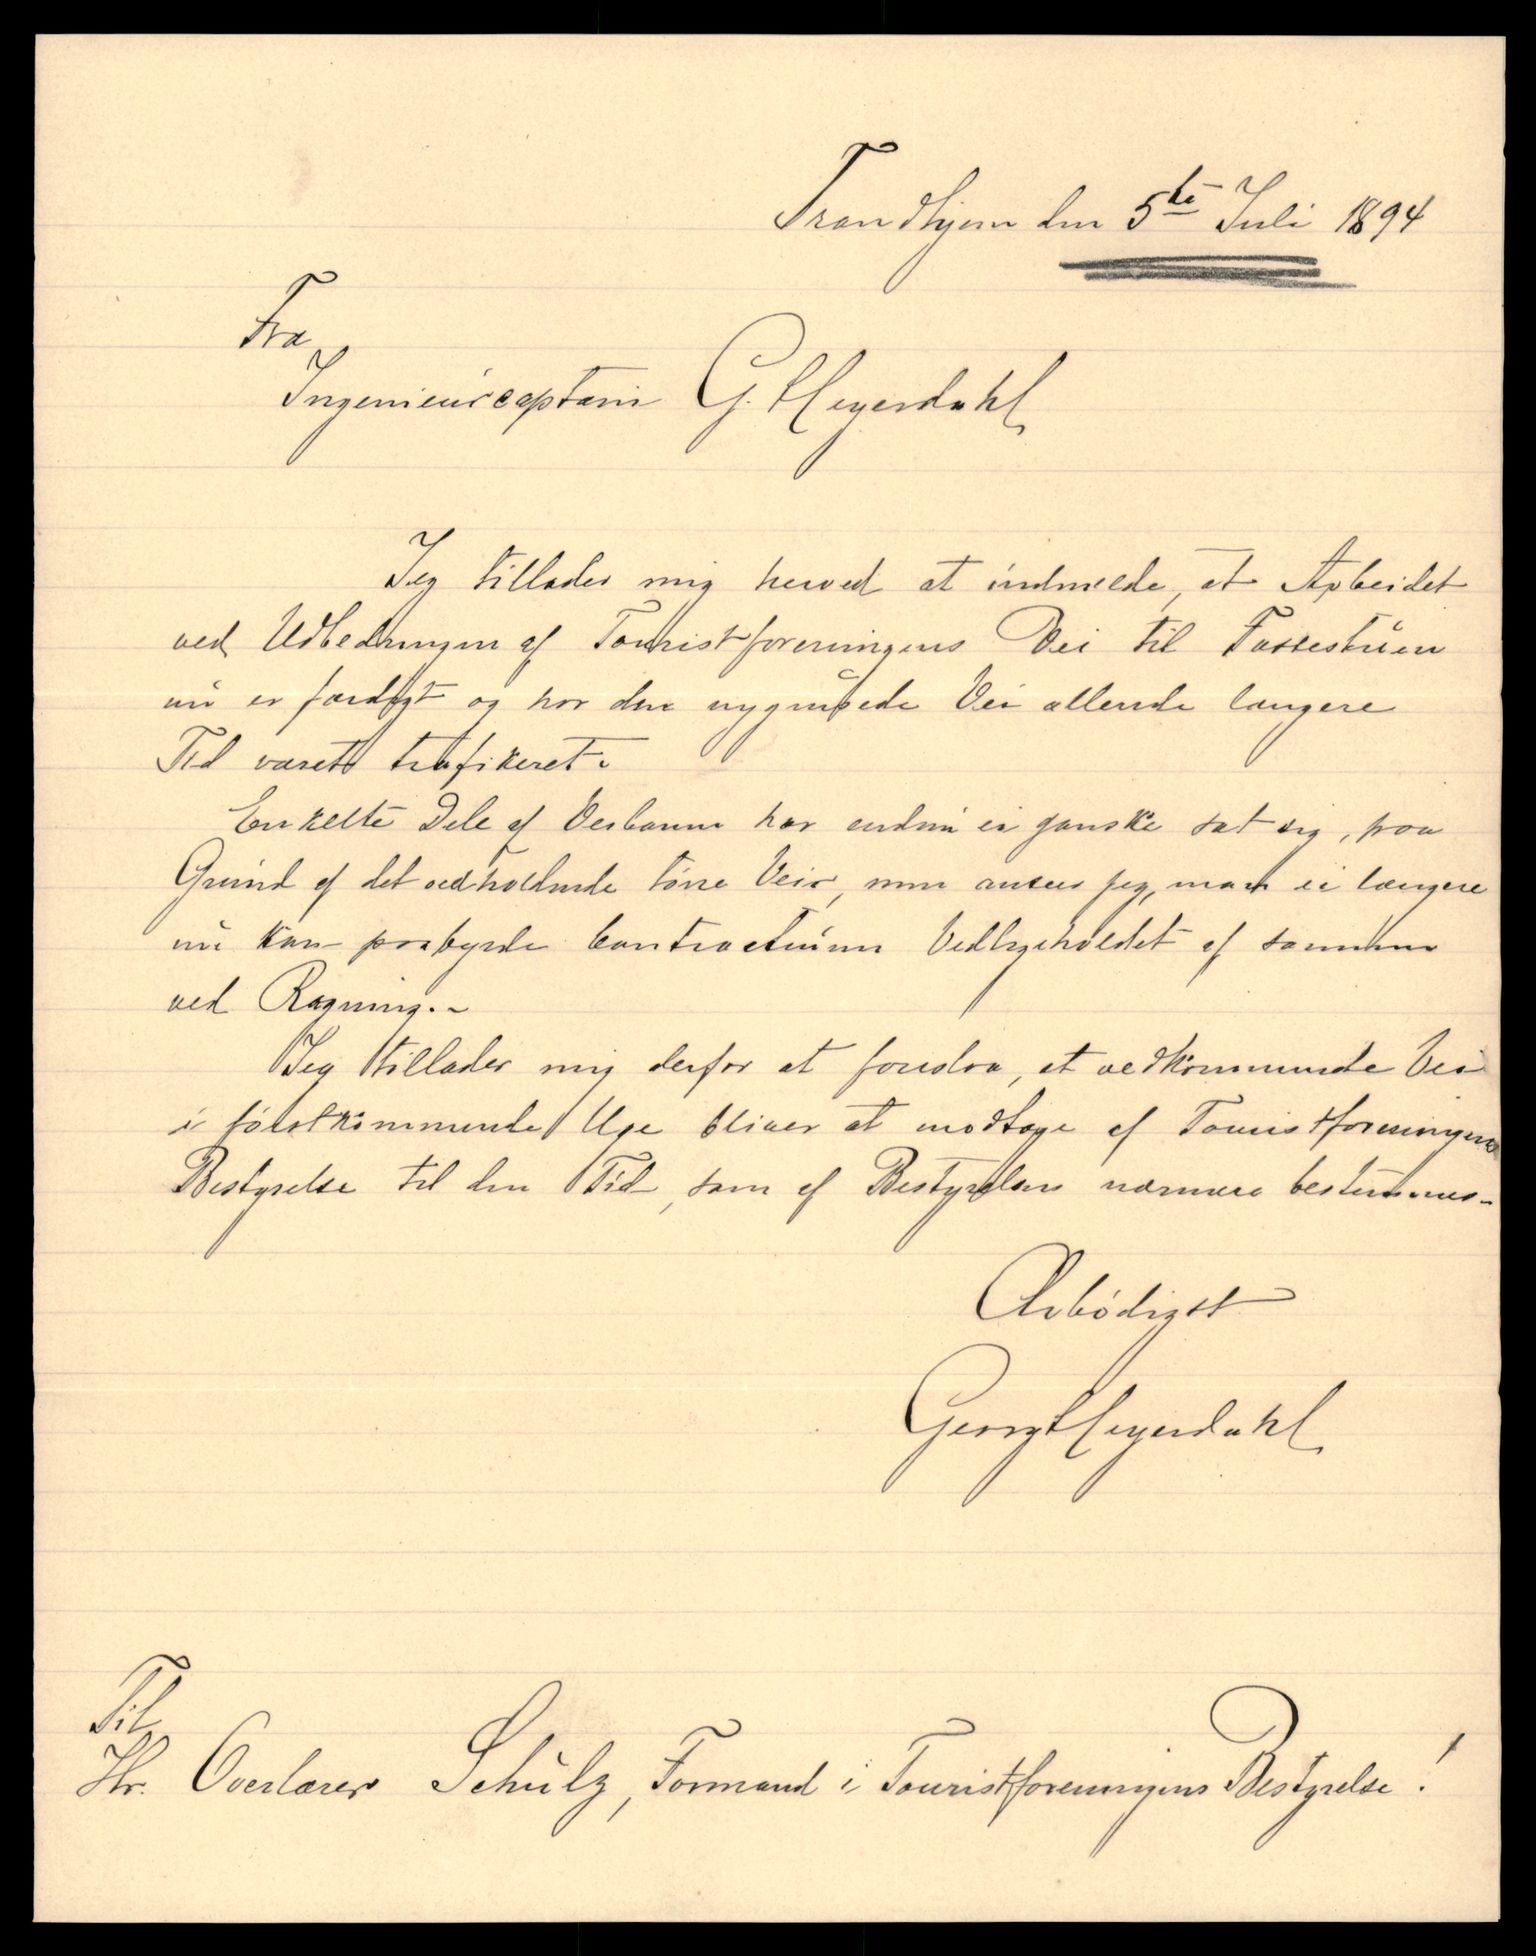 Trondhjem den 5te Juli 1894
Fra
Ingenieurcaptain G. Heyerdahl
Jeg tillader mig herved at indmelde, at Arbeidet
ved Udbedringen af Touristforeningens Vei til Fossestuen
nu er færdigt og har den nygrusede Vei allerede længere
Tid været trafikeret.
Enkelte Dele af Veibanen har endnu ei ganske sat sig, paa
Grund af det vedholdende tørre Veir, men anseer jeg, man ei længere
nu kan paabyrde Contracteuren Vedligeholdet af samme
ved Ragning.-
Jeg tillader mig derfor at foreslaa, at vedkommende Vei
i førstkommende Uge bliver at modtage af Touristforeningens
Bestyrelse til den Tid, som af Bestyrelsen nærmere bestemmes.
Ærbødigst
Georg Heyerdahl
Til
Hr. Overlærer Schulz, Formand i Touristforeningens Bestyrelse!